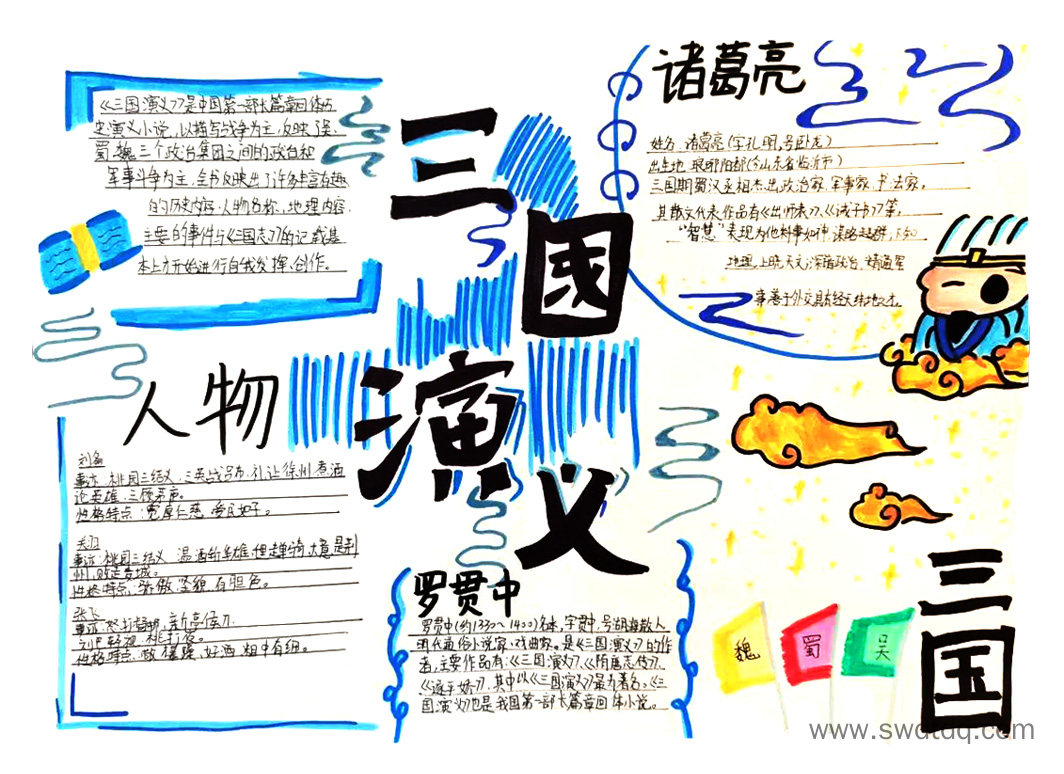 《三国演义》是中国第一部长篇章回体历
史演义小说，以描写战争为主，反映了吴、
蜀、魏三个政治集团之间的政治和
军事斗争为主，全书反映出了许多丰富有趣
的历史内容，人物名称、地理内容、
主要的事件与《三国志》的记载基
本上方开始进行自我发挥、创作。
三国演义
诸葛亮
姓名：诸葛亮（字孔明，号卧龙）
出生地：琅琊阳都（今山东省临沂市）
三国期蜀汉丞相杰出政治家、军事家、书法家，
其散文代表作品有《出师表》、《诫子书》等，
“智慧”表现为他料事如神，谋略超群，
地理，上晓天文，深蕴政治，精通军
事，善于外交，具有经天纬地之才。
人物
刘备
事迹：桃园三结义，三英战吕布，礼让徐州，煮酒
论英雄，三顾茅庐。
性格特点：宽厚仁慈，爱民如子。
关羽
事迹：桃园三结义，温酒斩华雄，千里单骑，大意失荆
州，败走麦城。
性格特点：骄傲，坚毅，有胆色。
张飞
事迹：怒打督邮，
性格特点：好酒，粗中有细。
罗贯中
罗贯中（约1330～1400）名本，字贯中，号湖海散人
明代通俗小说家、戏曲家。是《三国演义》的作
者，主要作品有：《三国演义》、《隋唐志传》、
，其中以《三国演义》最为著名。《三
国演义》也是我国第一部长篇章回体小说。
魏
蜀
吴
三国
www.swdtdq.com